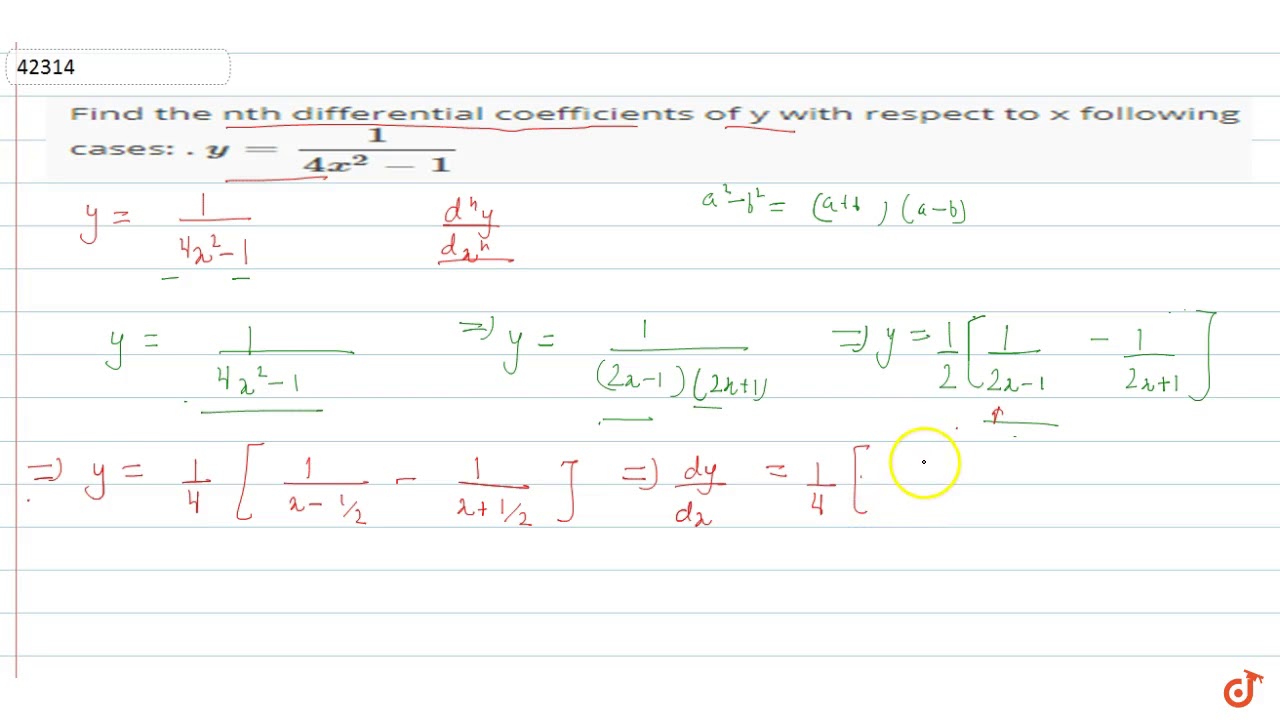 42314
Find the nth differential coefficients of y with respect to x following
cases: . y = 1/(4x² − 1)
y = 1/(4x² − 1)   dⁿy/dxⁿ   a² − b² = (a+b)(a−b)
y = 1/(4x² − 1)   ⇒ y = 1/((2x−1)(2x+1))   ⇒ y = 1/2 [1/(2x−1) − 1/(2x+1)]
⇒ y = 1/4 [1/(x − 1/2) − 1/(x + 1/2)]   ⇒ dy/dx = 1/4 [